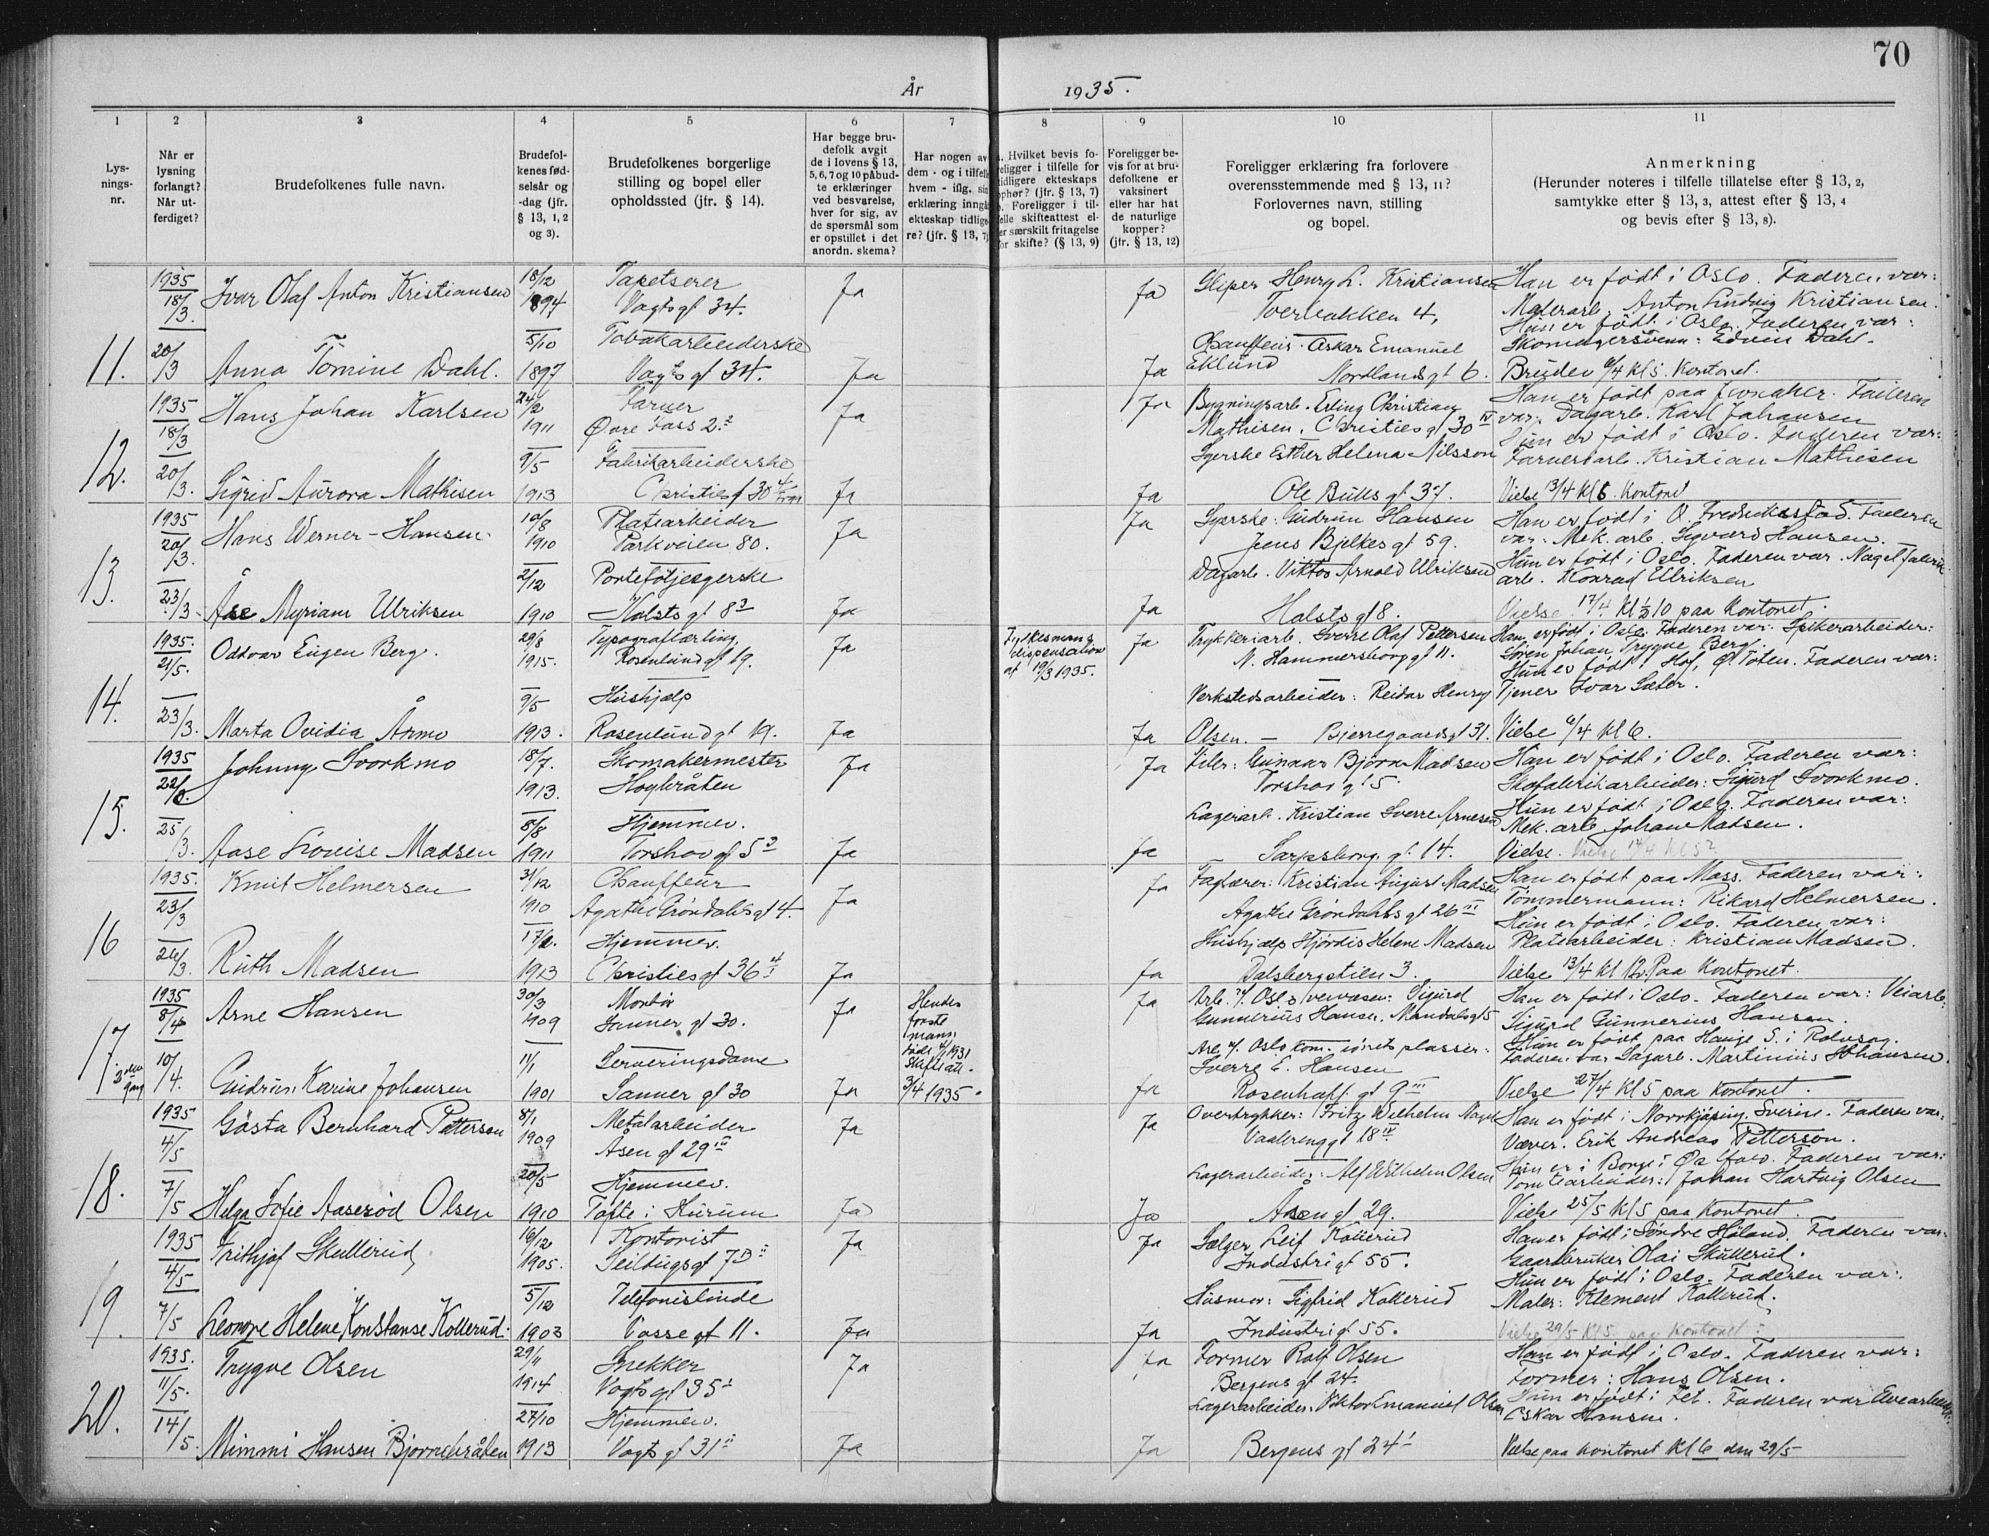 70
År 1935.
1 2 3 4 5 6 7 8 9 10 11
Lysningsnr.
Når er lysning forlangt? Når utferdiget?
Brudefolkenes fulle navn.
Brudefolkenes fødselsår og -dag (jfr. § 13, 1, 2 og 3).
Brudefolkenes borgerlige stilling og bopel eller opholdssted (jfr. § 14).
Har begge brudefolk avgit de i lovens § 13, 5, 6, 7 og 10 påbudte erklæringer ved besvarelse, hver for sig, av de spørsmål som er opstillet i det anordn. skema?
Har nogen av dem - og i tilfelle hvem - iflg. sin erklæring inngått ekteskap tidligere? (jfr. § 13, 7)
a. Hvilket bevis foreligger i tilfelle for tidligere ekteskaps ophør? (jfr. § 13, 7)
b. Foreligger i tilfelle skifteattest eller særskilt fritagelse for skifte? (§ 13, 9)
Foreligger bevis for at brudefolkene er vaksinert eller har hat de naturlige kopper? (jfr. § 13, 12)
Foreligger erklæring fra forlovere overensstemmende med § 13, 11? Forlovernes navn, stilling og bopel.
Anmerkning
(Herunder noteres i tilfelle tillatelse efter § 13, 2, samtykke efter § 13, 3, attest efter § 13, 4 og bevis efter § 13, 8).
11.
1935 18/3.
Ivar Olaf Anton Kristiansen
18/12 1894
Tapetserer
Vogts gt 34.
Ja
Ja
Sliper Henry L. Kristiansen
Tverbakken 4,
Han er født i Oslo. Faderen var:
Malerarb. Anton Ludvig Kristiansen.
Hun er født i Oslo. Faderen var:
20/3
Anna Tomine Dahl.
5/10 1897
Tobakarbeiderske
Vogts gt 34.
Ja
Ja
Chauffeur Oskar Emanuel
Eklund Nordlands gt 6.
Skomagersvenn: Edvin Dahl.
Kl 5. Kontoret.
12.
1935 18/3
Hans Johan Karlsen
24/2 1911
Farver
Øvre Foss 2.
Ja
Ja
Bygningsarb. Erling Christian
Mathisen. Christies gt 30 IV
Han er født paa Jevnaker. Faderen
var: Dagarb. Karl Johansen
Hun er født i Oslo. Faderen var:
20/3.
Sigrid Aurora Mathisen
9/5 1913
Fabrikarbeiderske
Christies gt 30
Ja
Ja
Syerske Esther Helena Nilsson
Ole Bulls gt 37.
Farveriarb. Kristian Mathisen
Vielse 13/4 Kl 6. Kontoret
13.
1935 20/3.
Hans Werner-Hansen.
10/8 1910
Platearbeider
Parkveien 80.
Ja
Ja
Syerske: Gudrun Hansen
Jens Bjelkes gt 59.
Han er født i Ø. Fredrikstad. Faderen
var: Mek. arb. Sigvard Hansen.
Hun er født i Oslo. Faderen var Nagelfabrik
23/3.
Åse Myriam Ulriksen
2/12 1910
Porteføljesyerske
Holsts gt 8
Ja
Ja
Dagarb. Viktor Arnold Ulriksen
Holsts gt 8.
arb. Konrad Ulriksen
Vielse 17/4 kl ½ 10 paa Kontoret.
14.
1935. 21/5.
Oddvar Eugen Berg.
29/8 1915.
Typograflærling
Rosenlund gt 19.
Ja
Fylkesmans dispensation af 19/3 1935.
Ja
Trykkeriarb. Sverre Olaf Pettersen
N. Hammersborg gt 11.
Han er født i Oslo. Faderen var: Spikerarbeider:
Søren Johan Trygve Berg
Hun er født i Hof, Ø. Toten. Faderen var:
23/3.
Marta Ovidia Årmo
9/5 1913.
Hushjælp
Rosenlund gt 19.
Ja
Ja
Verkstedsarbeider: Reidar Henry
Olsen. — Bjerregaards gt 31.
Tjener Ivar Sæter.
Vielse 6/4 kl 6.
15.
1935 22/3.
Johnny Svorkmo
18/7. 1913.
Skomakermester
Høybråten
Ja
Ja
Filer: Gunnar Bjørn Madsen
Torshov gt 5
Han er født i Oslo. Faderen var:
Skofabrikarbeider: Sigurd Svorkmo.
Hun er født i Oslo. Faderen var:
25/3.
Aase Lovise Madsen
8/8 1911
Hjemmev.
Torshov gt 5
Ja
Ja
Lagerarb. Kristian Sverre Arnesen
Sarpsborg gt 14.
Mek. arb. Johan Madsen.
Vielse. Vielse 14/4 Kl 5
16
1935. 23/3
Knut Helmersen
31/12 1910
Chauffeur
Agathe Grøndahls gt 4.
Ja
Ja
Faglærer: Kristian August Madsen
Agathe Grøndahls gt 26 III
Han er født paa Moss. Faderen var:
Tømmermann: Rikard Helmersen.
Hun er født i Oslo. Faderen var:
26/3.
Ruth Madsen
1913
Hjemmev.
Christies gt 36
Ja
Ja
Hushjælp Hjørdis Helene Madsen
Dalsbergstien 3.
Platearbeider: Kristian Madsen.
Vielse 13/4 kl Paa Kontoret.
17. 3dem gang
1935 8/4
Arne Hansen
30/3 1909
Montør
Sanner gt 30.
Ja
Hendes første mans død 1931 Skifteatt. 3/4 1935.
Ja
Arb. v. Oslo veivæsen: Sigurd
Gunnerius Hansen. Mandals gt 5
Han er født i Oslo. Faderen var: Veiarb:
Sigurd Gunnerius Hansen.
Hun er født paa Hauge S. i Rolvsøy.
10/4.
Gudrun Karine Johansen
11/1 1901
Serveringsdame
Sanner gt 30
Ja
Ja
Arb. v. Oslo kom. idretsplasser:
Sverre E. Hansen
Rosenhoff gt 9 III
Faderen var Dagarb. Martinius Johansen.
Vielse 27/4 Kl 5 paa Kontoret.
18.
1935 4/5
Gösta Bernhard Petterson
8/1 1909
Metalarbeider
Åsen gt 29 IV
Ja
Ja
Overtrykker: Fritz Wilhelm Nagel
Vaalereng gt 18 IV
Han er født i Norrkjøping, Sverine. Faderen var:
Væver. Erik Andreas Petterson.
Hun er i Borge i Østfold. Faderen var:
7/5
Helga Sofie Aaserød Olsen
20/5 1910
Hjemmev.
Tofte i Hurum
Ja
Ja
Lagerarbeider: Alf Wilhelm Olsen
Åsen gt 29.
Tomtearbeider: Johan Hartvig Olsen
Vielse 25/5 Kl 5 paa Kontoret.
19.
1935 4/5
Frithjof Skullerud
16/12 1905.
Kontorist
Seildugs gt 7B II
Ja
Ja
Sælger Leif Kollerud
Industri gt 55.
Han er født i Søndre Høland. Faderen var:
Gaardbruker Olai Skullerud.
Hun er født i Oslo. Faderen var:
7/5
Leonore Helene Konstanse Kollerud.
5/12 1903
Telefonistinde
Vosse gt 11.
Ja
Ja
Husmor: Sigfrid Kollerud
Industri gt 55.
Maler: Klement Kollerud.
Vielse 29/5 Kl 5. paa Kontoret:
20.
1935. 11/5.
Trygve Olsen
29/11 1914
Snekker
Vogts gt 35
Ja
Ja
Former Rolf Olsen
Bergens gt 24
Han er født i Oslo. Faderen var:
Former: Hans Olsen.
Hun er født i Fet. Faderen var
14/5.
Mimmi Hansen Bjørnebråten
27/10 1913
Hjemmev.
Vogts gt 31 II
Ja
Ja
Lagerarbeider. Viktor Emanuel Olsen
Bergens gt 24
Oskar Hansen.
Vielse paa kontoret kl 6 den 29/5